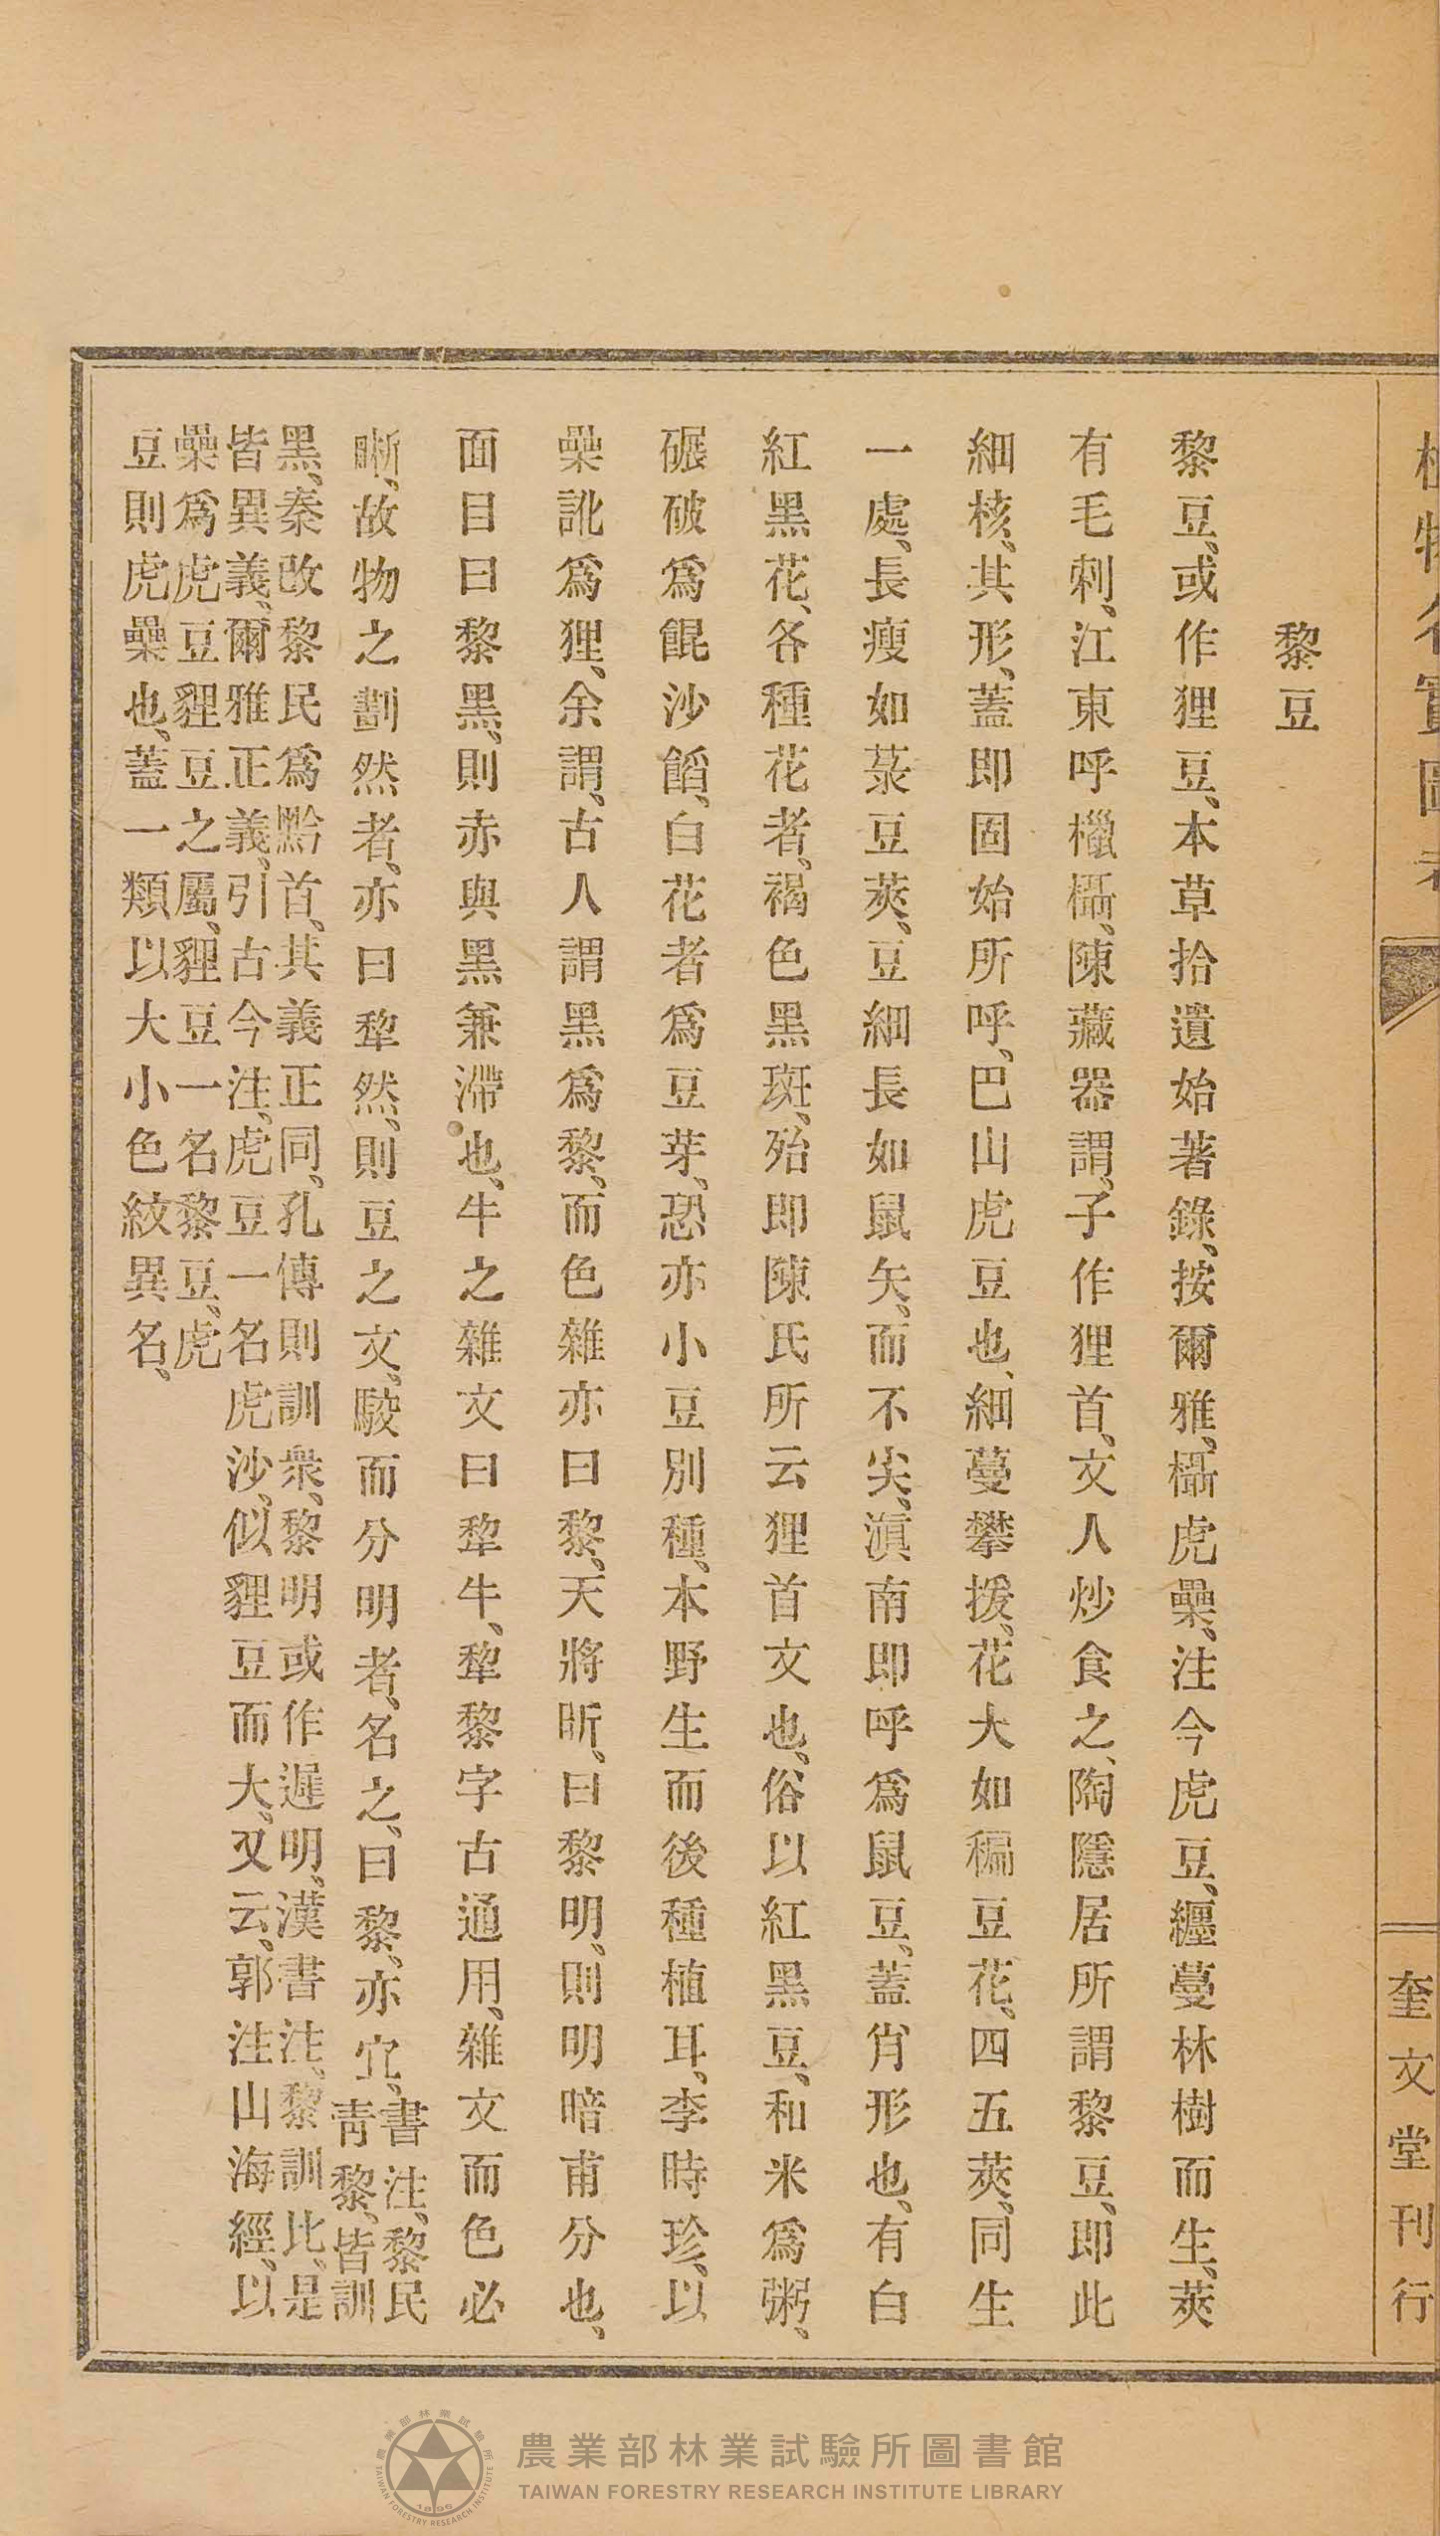 植物名實圖考
奎文堂刊行
黎豆
黎豆、或作狸豆、本草拾遺始著錄、按爾雅、欇虎櫐、注今虎豆、纏蔓林樹而生、莢
有毛刺、江東呼𣜰欇、陳藏器謂、子作狸首、文人炒食之、陶隱居所謂黎豆、即此
細核、其形、蓋即固始所呼、巴山虎豆也、細蔓攀援、花大如稨豆花、四五莢、同生
一處、長瘦如菉豆莢、豆細長如鼠矢、而不尖、滇南即呼爲鼠豆、蓋肖形也、有白
紅黑花、各種花者、褐色黑斑、殆即陳氏所云狸首文也、俗以紅黑豆、和米爲粥、
碾破爲餛沙餡、白花者爲豆芽、恐亦小豆別種、本野生而後種植耳、李時珍、以
櫐訛爲狸、余謂、古人謂黑爲黎、而色雜亦曰黎、天將昕、曰黎明、則明暗甫分也、
面目曰黎黑、則赤與黑兼滯也、牛之雜文曰犂牛、犂黎字古通用、雜文而色必
晰、故物之劃然者、亦曰犂然、則豆之文、駮而分明者、名之、曰黎、亦宜、書注、黎民
青黎、皆訓
黑、秦改黎民爲黔首、其義正同、孔傳則訓衆、黎明或作遲明、漢書注、黎訓比、是
皆異義、爾雅正義、引古今注、虎豆一名虎沙、似貍豆而大、又云、郭注山海經、以
櫐爲虎豆貍豆之屬、貍豆一名黎豆、虎
豆則虎櫐也、蓋一類以大小色紋異名、
農業部林業試驗所圖書館
TAIWAN FORESTRY RESEARCH INSTITUTE LIBRARY
農業部林業試驗所
TAIWAN FORESTRY RESEARCH INSTITUTE
1895